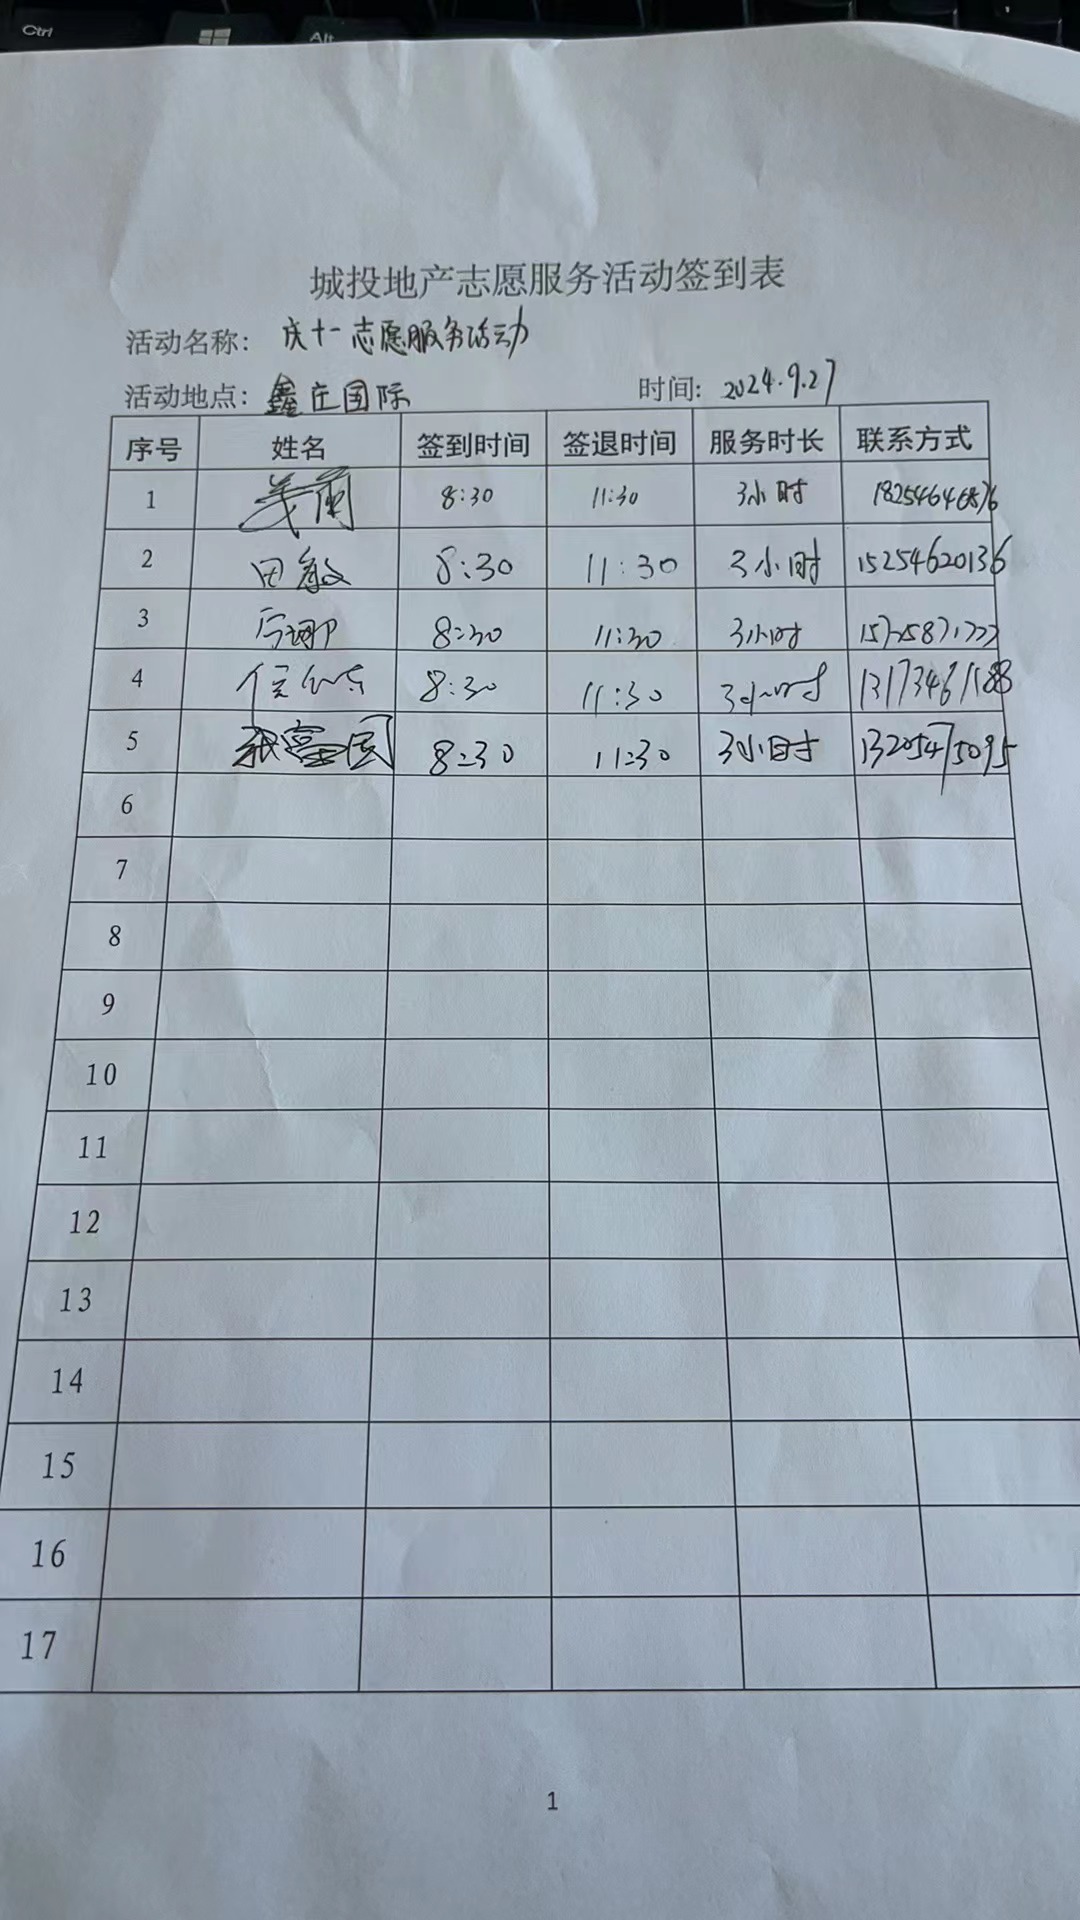 Ctrl
Alt
城投地产志愿服务活动签到表
活动名称: 庆十一志愿服务活动
活动地点: 鑫庄国际 时间: 2024.9.27
序号 姓名 签到时间 签退时间 服务时长 联系方式
1 8:30 11:30 3小时
2 田敏 8:30 11:30 3小时 15254620136
3 8:30 11:30 3小时
4 8:30 11:30 3小时
5 张富国 8:30 11:30 3小时 13205475095
6
7
8
9
10
11
12
13
14
15
16
17
1